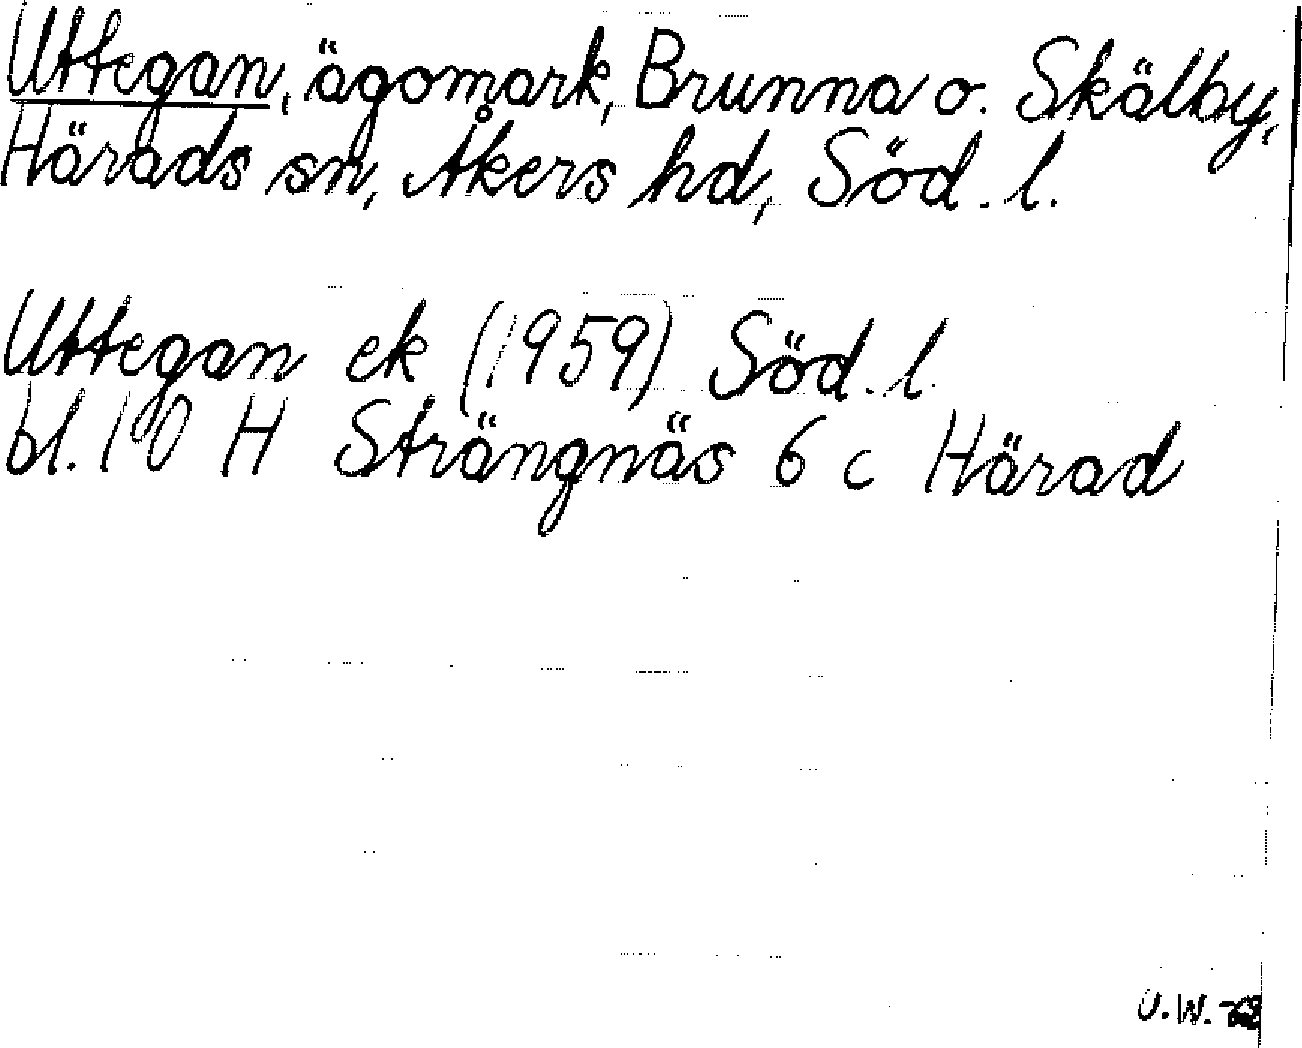 Uttegan, ägomark, Brunna o. Skälby,
Härads sn, Åkers hd, Söd. l.
Uttegan ek (1959) Söd. l.
bl. 10 H Strängnäs 6 c Härad
U.W.